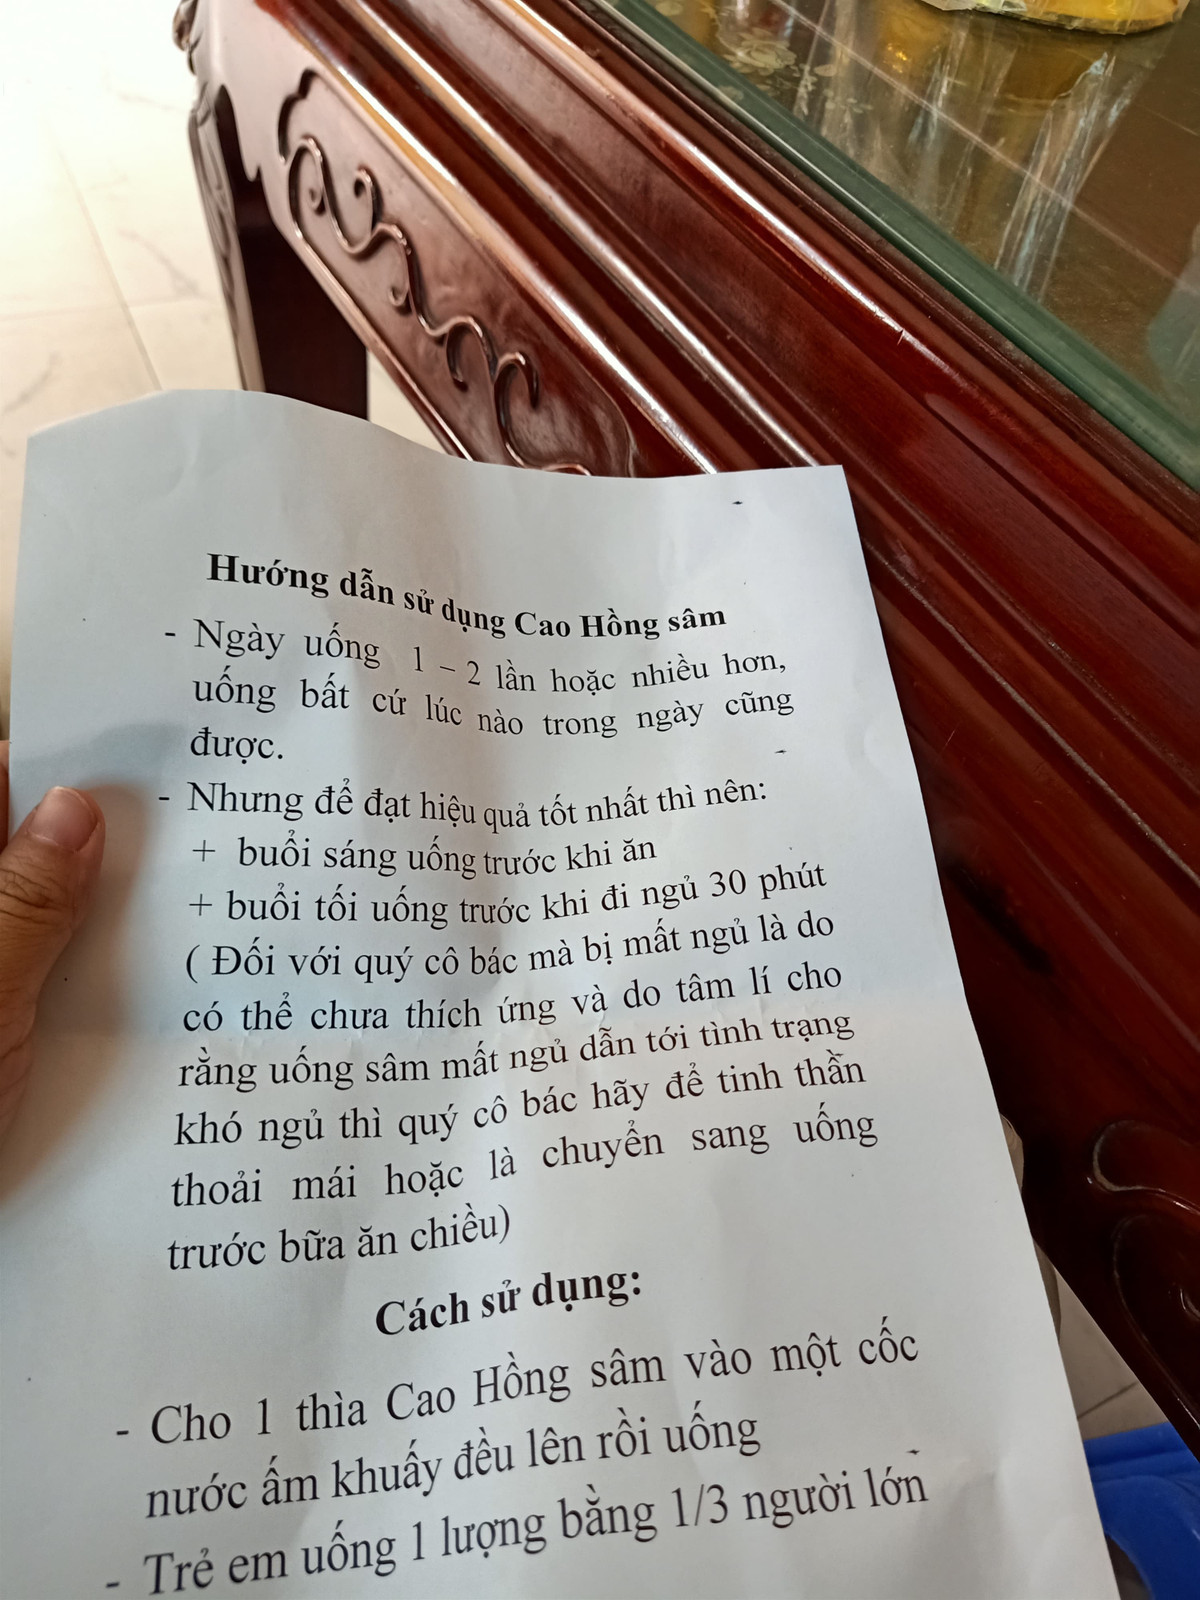 Hướng dẫn sử dụng Cao Hồng sâm
- Ngày uống 1 – 2 lần hoặc nhiều hơn,
uống bất cứ lúc nào trong ngày cũng
được.
- Nhưng để đạt hiệu quả tốt nhất thì nên:
+ buổi sáng uống trước khi ăn
+ buổi tối uống trước khi đi ngủ 30 phút
( Đối với quý cô bác mà bị mất ngủ là do
có thể chưa thích ứng và do tâm lí cho
rằng uống sâm mất ngủ dẫn tới tình trạng
khó ngủ thì quý cô bác hãy để tinh thần
thoải mái hoặc là chuyển sang uống
trước bữa ăn chiều)
Cách sử dụng:
- Cho 1 thìa Cao Hồng sâm vào một cốc
nước ấm khuấy đều lên rồi uống
- Trẻ em uống 1 lượng bằng 1/3 người lớn